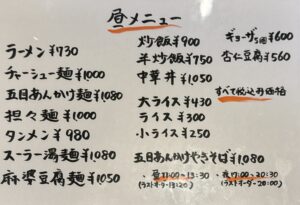 昼メニュー
ラーメン ¥730
チャーシュー麺 ¥1,000
五目あんかけ麺 ¥1,080
担々麺 ¥1,000
タンメン ¥980
スーラー湯麺 ¥1,080
麻婆豆腐麺 ¥1,050
炒飯 ¥900
半炒飯 ¥750
中華丼 ¥1,050
大ライス ¥430
ライス ¥300
小ライス ¥250
五目あんかけやきそば ¥1,080
ギョーザ5個 ¥600
杏仁豆腐 ¥560
すべて税込み価格
・昼11:00~13:30
(ラストオーダー13:20)
・夜17:00~20:30
(ラストオーダー20:00)